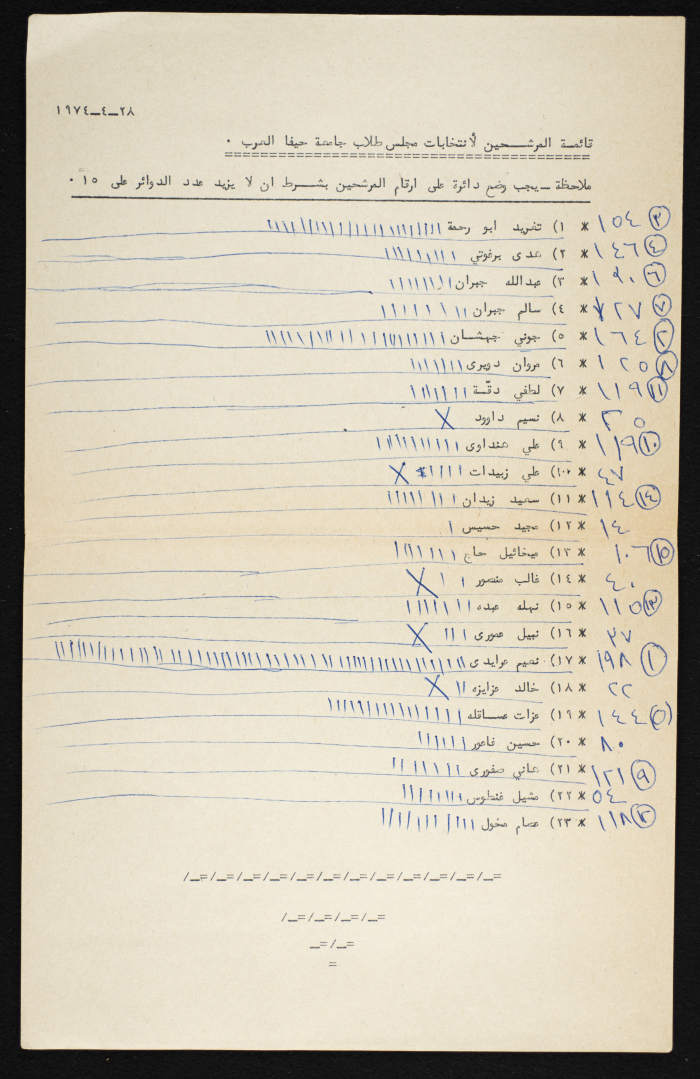 ٢٨ــ٤ــ١٩٧٤
قائمــة المرشــــحين لأنتخابات مجلس طلاب جامعة حيفا العرب ٠
ملاحظة ــ يجب وضع دائرة على ارقام المرشحين بشــــرط ان لا يزيد عدد الدوائر على ١٥ ٠
٣ ١٥٤ * ١) تغريد ابو رحمة
٤ ١٤٦ * ٢) هدى برغوتي
٦ * ٣) عبدالله جبران
٧ * ٤) سالم جبران
٢ ١٦٤ * ٥) جوني جهشــان
٨ ١٢٥ * ٦) مروان دويرى
١١ ١١٩ * ٧) لطفي دقّــة
٣٥ * ٨) نسيم داوود
١٠ ١١٩ * ٩) علي هنداوى
٤٧ * ١٠) علي زبيدات
١٤ ١١٤ * ١١) سعيد زيدان
١٤ * ١٢) مجيد حسيس
١٥ ١٠٦ * ١٣) ميخائيل حاج
٤٠ * ١٤) غالب منصور
١٣ ١١٥ * ١٥) نهله عبده
٣٧ * ١٦) نبيل عمورى
١ ١٩٨ * ١٧) نعيم عرايدى
٢٢ * ١٨) خالد عزايزه
٥ ١٤٤ * ١٩) عزات عســاقله
٨٠ * ٢٠) حسين فاعور
٩ ١٢١ * ٢١) هاني صفورى
٥٤ * ٢٢) مشيل غنطوس
١٢ ١١٨ * ٢٣) عصام مخول